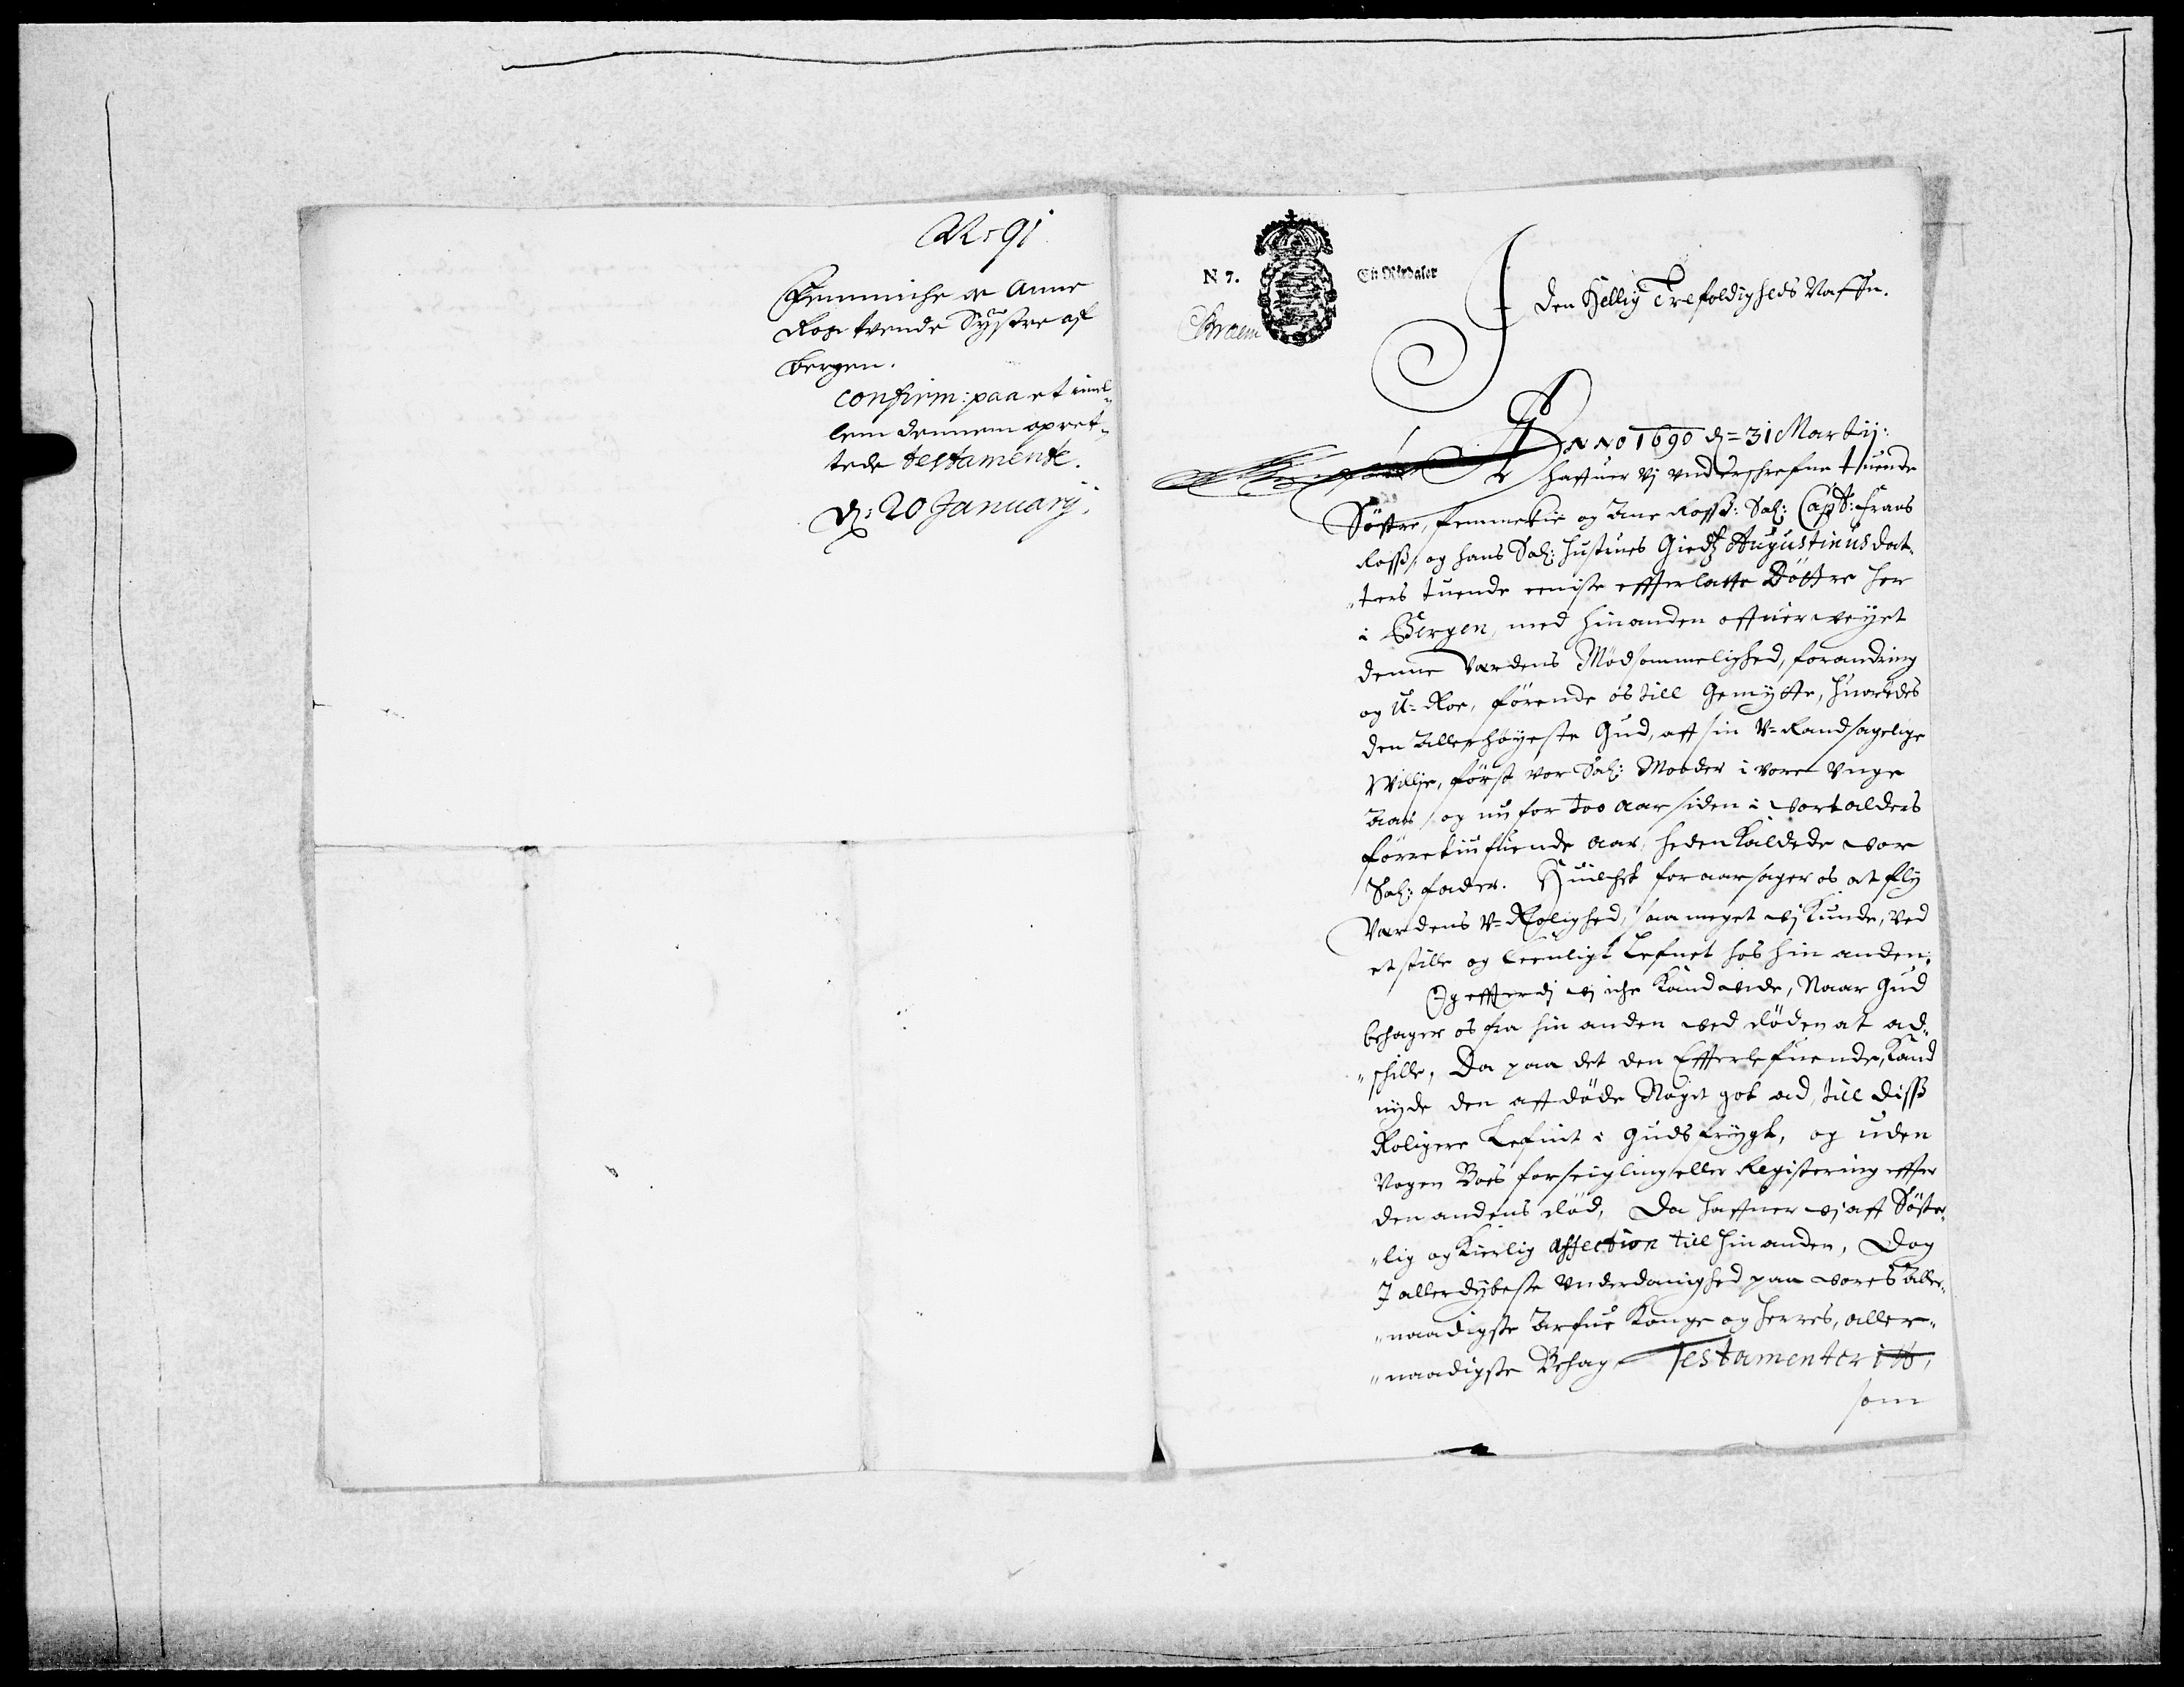 91
Femmiche og Anne
Ross tvende Systre af
Bergen.
confirm: paa et imel-
lem dennem opret-
tede testamente.
d: 20 January.
N 7.
Een Rixdaler
I den Hellig Trefoldigheds Naffn.
Anno 1690 d= 31 Martij:
haffuer vj underschrefne tuende
Söstre, femmekie og Ane Ross: Sal: Capt: Frans
Ross, og hans Sal: Hustrues Giedz Augustinus dat-
"ters tuende eeniste effterlatte Döttre her
i Bergen, med hinanden offuerveyet
denne Verdens Mödsommelighed, forandring
og U-Roe, förende os till Gemytte, huorledes
den Allerhöyeste Gud, aff sin U-Randsagelige
Willje, först vor Sal: Mooder i vore Unge
Aar, og nu for too aar siden i vort alders
förretiufuende aar, hedenkaldede vor
Sal: fader. Huilchet foraarsager os at fly
Verdens U-Rolighed, saa meget vj kunde, ved
et stille og eenligt Lefnet hos hin anden;
Og effterdj vj iche kand vide, Naar Gud
behager os fra hin anden ved döden at ad-
"schille, Da paa det den Effterlefuende, kand
nyde den aff döde Noget got ad, till diss
Roligere Lefnit i Gudsfrygt, og uden
Nogen Boes forseigling eller Registering effter
den andens död, Da haffuer vj aff Söster-
"lig og kierlig affection till hin anden, Dog
I allerdybeste Underdanighed paa vores Aller-
"naadigste Arfue Konge og Herres, aller-
"naadigste Behag, Testamenteritt,
som